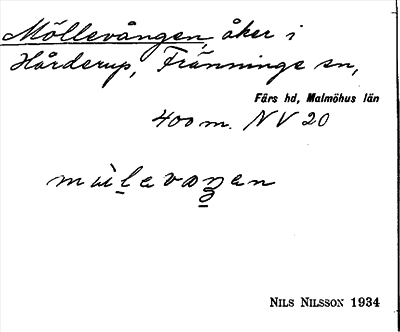 Möllevången, åker i
Hårderup, Fränninge sn,
Färs hd, Malmöhus län
400 m. NV 20
Nils Nilsson 1934